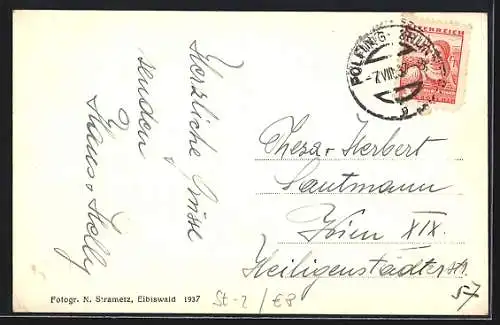 Herzliche Grüsse
senden
Hans + Helly
ÖSTERREICH
PÖLFING-BRUNN
-7.VIII.37
Thesa + Herbert
Sautmann
Wien XIX.
Heiligenstädterstr.
57
Fotogr. N. Strametz, Eibiswald 1937
St-2 / €8